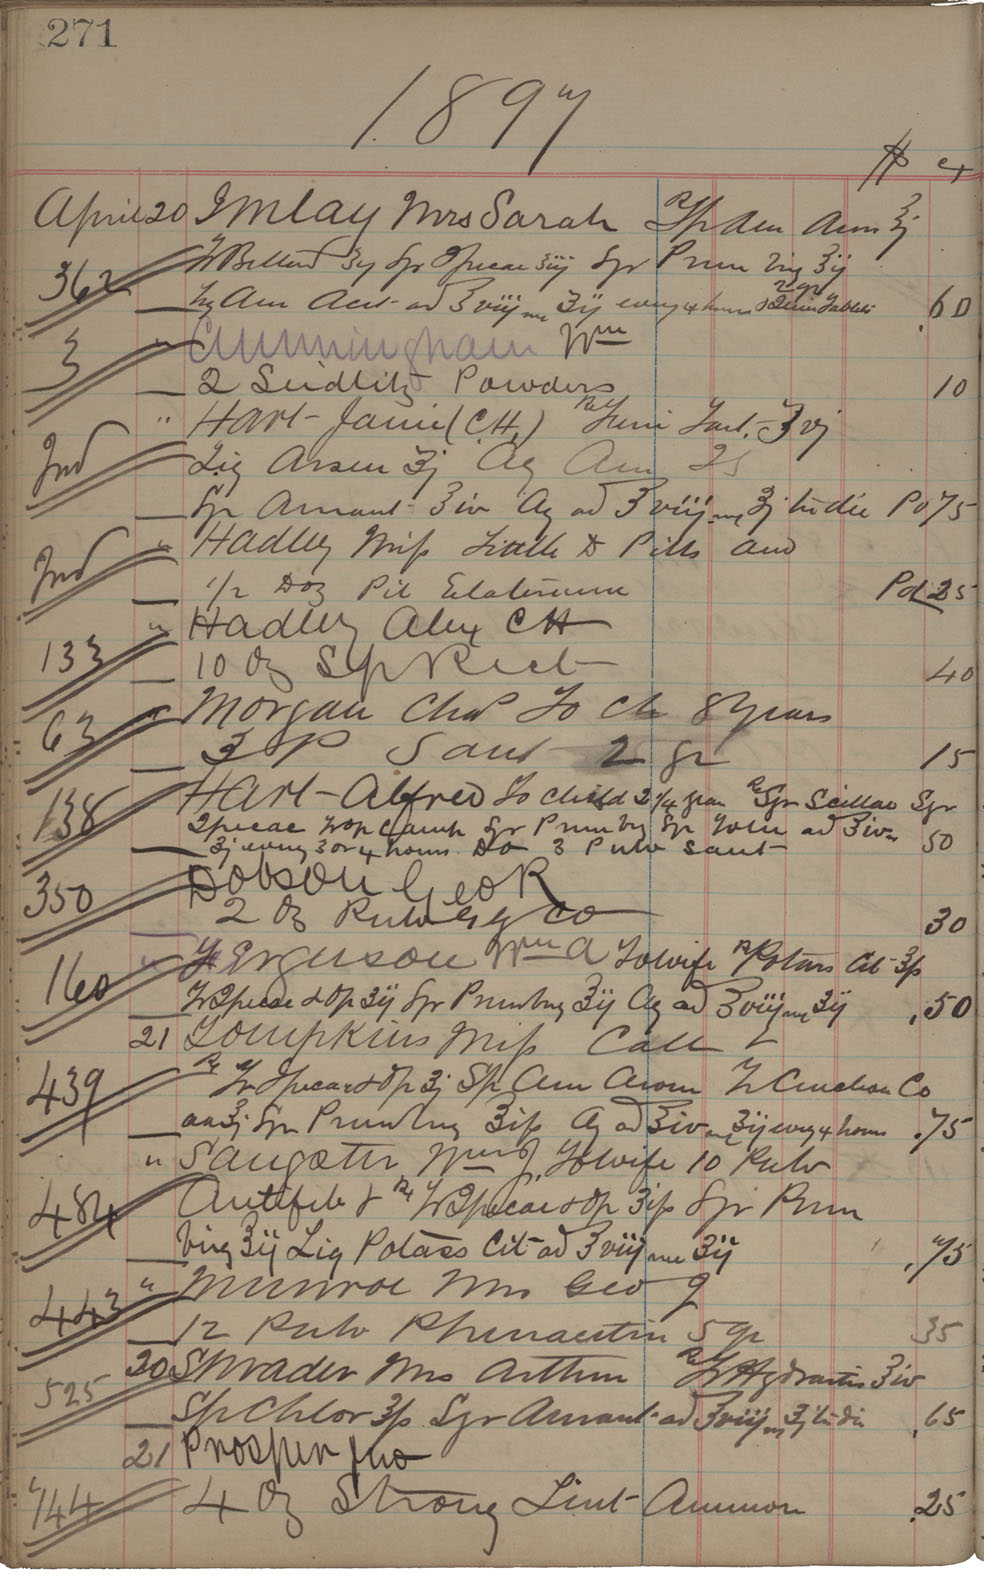 271
1897
$ ct
April 20 Imlay Mrs Sarah Rx Sp Am Arom ʒj
Tr Bellad ʒij Syr Ipecac ʒiij Syr Prun Virg ʒij
362 Liq Am Acet ad ℥viij ʒij every 4 hours & 2 gr Quin Tablets .60
3 " Cunningham Wm
2 Seidlitz Powders 10
" Hart Jamie (C.H.) Rx Ferri Tart ʒvj
Pd Liq Arsen ʒj Aq Am
Syr Aurant ℥iv Aq ad ℥viij ʒj ter die Pd 75
" Hadley Miss Little D Pills and
Pd 1/2 Doz Pil Elaterium Pd 25
" Hadley Alex CH
133 10 Oz Sp Rect 40
63 " Morgan Chas To Ch 8 years
3 P Sant 2 gr 15
138 Hart Alfred To child 2 1/4 year Rx Syr Scillae Syr
Ipecac Trop Camph Syr Prun Virg Syr Tolu ad ℥iv
ʒj every 3 or 4 hours Do 3 Pulv Sant 50
350 Dobson Geo R
2 Oz Pulv Gly Co 30
160 " Ferguson Wm A To wife Rx Potass Cit
Tr Ipecac & Op ʒij Syr Prun Virg ℥ij Aq ad ℥viij ʒij .50
21 Tompkins Miss Call
439 Rx Tr Ipecac & Op ʒj Sp Am Arom Tr Cinchon Co
aa ʒj Syr Prun Virg Aq ad ℥iv ʒij every 4 hours .75
" Sangster Wm J. To wife 10 Pulv
484 Antifeb & Rx Tr Ipecac & Op Syr Prun
Virg ℥ij Liq Potass Cit ad ℥viij ʒij .75
443 " Munroe Mrs Geo J
12 Pulv Phenacetin 5 gr 35
20 Shrader Mrs Arthur Rx Tr Hydrastis ʒiv
525 Sp Chlor Syr Aurant ad ℥viij ʒj ter die .65
21 Prosper Jno
744 4 Oz Strong Lint Ammon .25